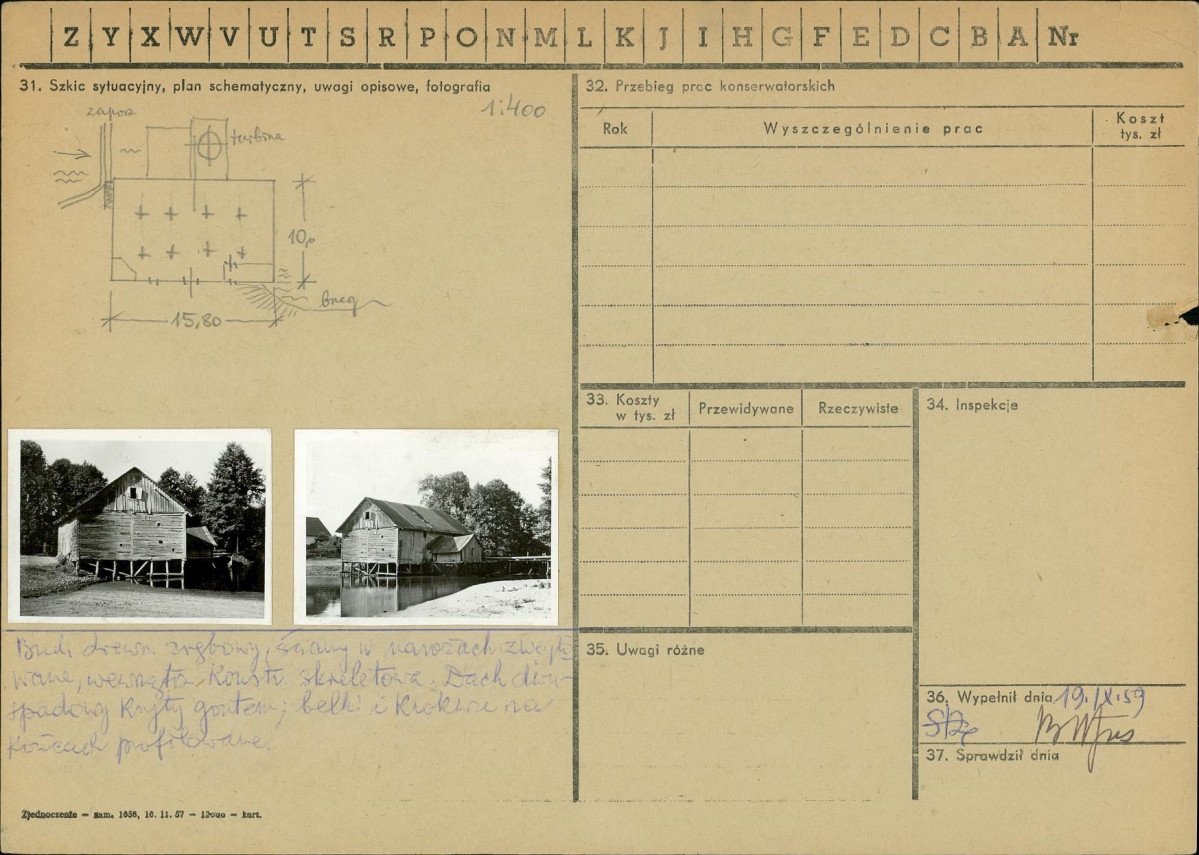 Z Y X W V U T S R P O N M L K J I H G F E D C B A Nr
31. Szkic sytuacyjny, plan schematyczny, uwagi opisowe, fotografia
1:400
zapora
turbina
10,0
breg
15,80
Bud. drewn. zrębowy, ściany w narożach zwęgło
wane, wewnątrz konstr. szkieletowa. Dach dwu-
spadowy kryty gontem; belki i krokwie na
końcach profilowane.
Zjednoczenie — zam. 1656, 16. 11. 57 — — kart.
32. Przebieg prac konserwatorskich
Rok
Wyszczególnienie prac
Koszt
tys. zł
33. Koszty
w tys. zł
Przewidywane
Rzeczywiste
34. Inspekcje
35. Uwagi różne
36. Wypełnił dnia 19.IX.59
37. Sprawdził dnia